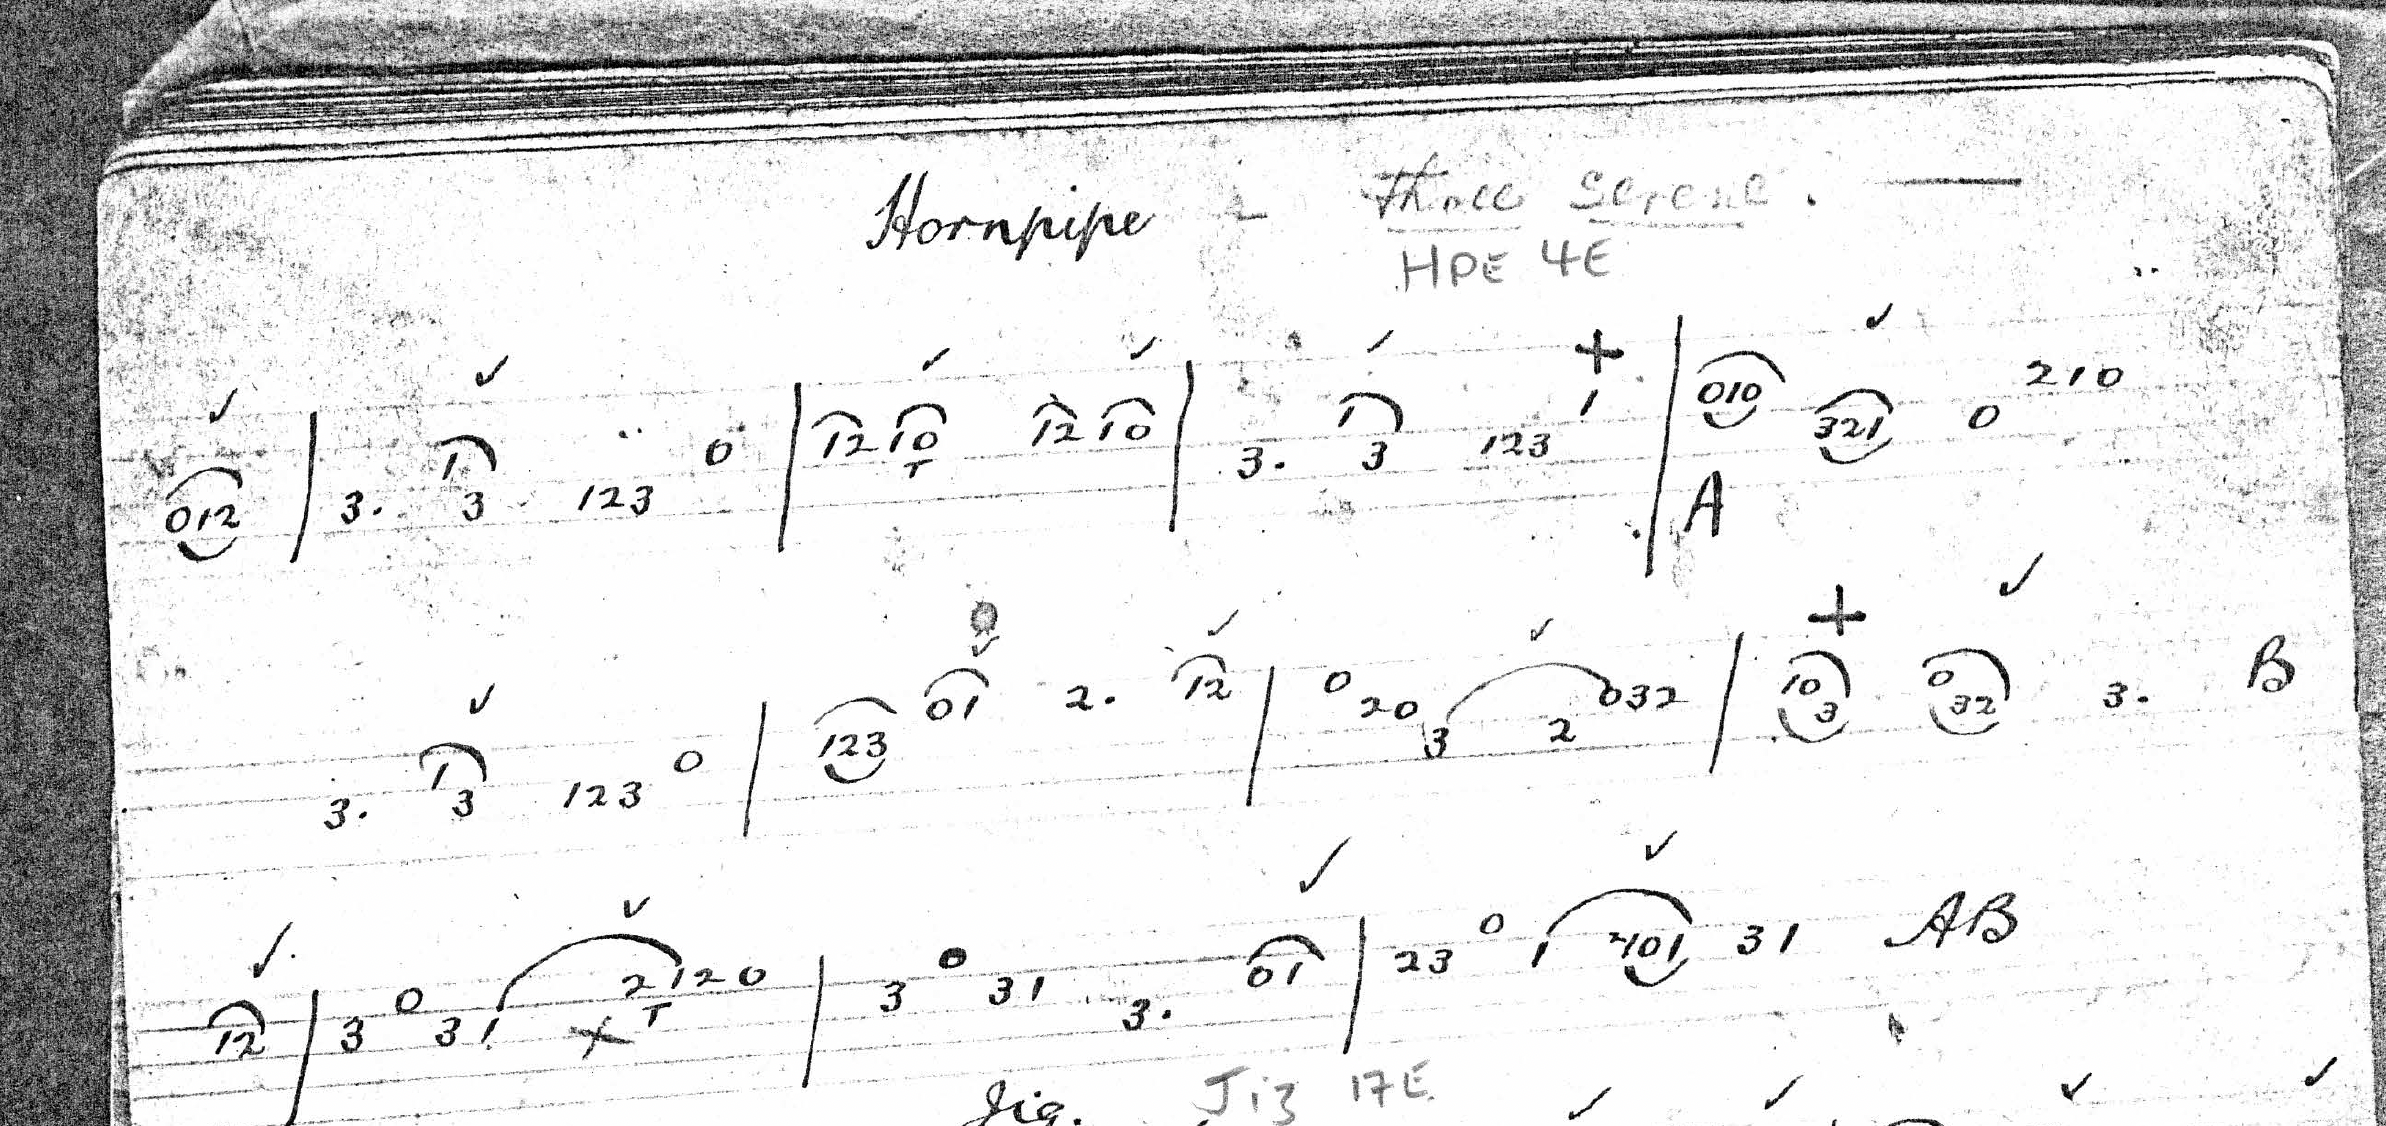 Hornpipe - Three
HPE 4E
✓ ✓ ✓ ✓ ✓ + ✓
012 | 3. 1 3 123 0 | 12 10 12 10 | 3. 1 3 123 1 | 010 321 0 210
T A
✓ ✓ ✓ ✓ + ✓
3. 1 3 123 0 | 123 01 2. 12 | 0 20 3 2 032 | 10 3 0 32 3. B
✓ ✓ ✓ ✓
12 | 3 0 3 1 2120 | 3 0 31 3. 01 | 23 0 1 401 31 AB
x T
Jig. Jig 17E
✓ ✓ ✓ ✓